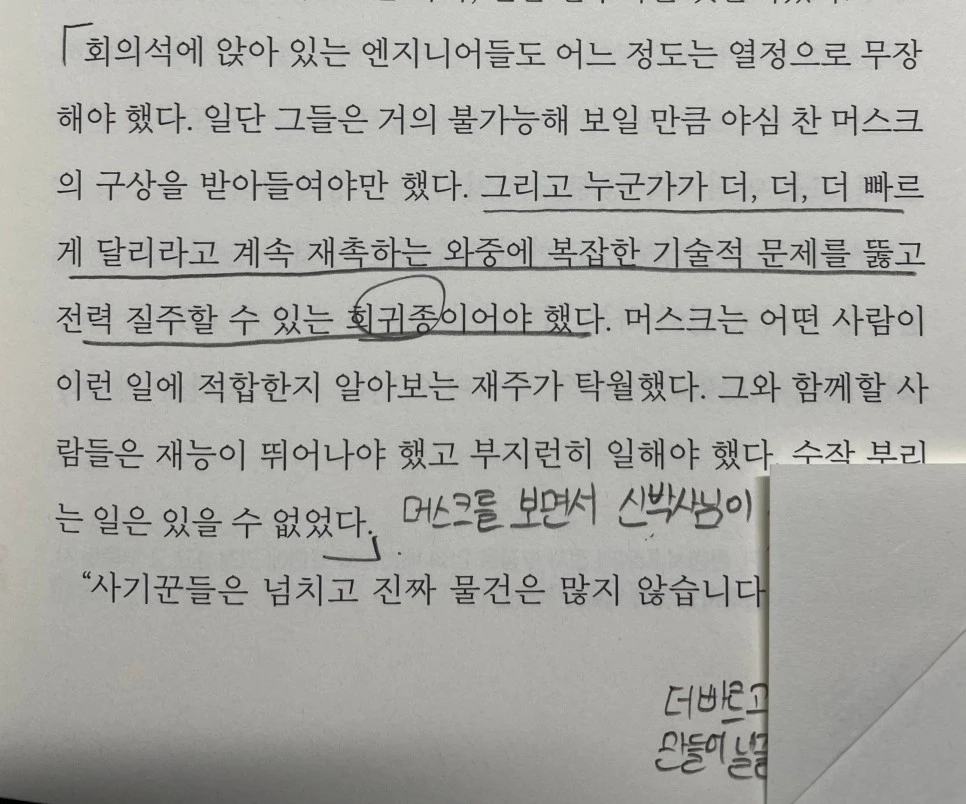 「회의석에 앉아 있는 엔지니어들도 어느 정도는 열정으로 무장
해야 했다. 일단 그들은 거의 불가능해 보일 만큼 야심 찬 머스크
의 구상을 받아들여야만 했다. 그리고 누군가가 더, 더, 더 빠르
게 달리라고 계속 재촉하는 와중에 복잡한 기술적 문제를 뚫고
전력 질주할 수 있는 희귀종이어야 했다. 머스크는 어떤 사람이
이런 일에 적합한지 알아보는 재주가 탁월했다. 그와 함께할 사
람들은 재능이 뛰어나야 했고 부지런히 일해야 했다. 수작 부리
는 일은 있을 수 없었다.」 머스크를 보면서 신박사님이
“사기꾼들은 넘치고 진짜 물건은 많지 않습니다
더 빠르고
만들어